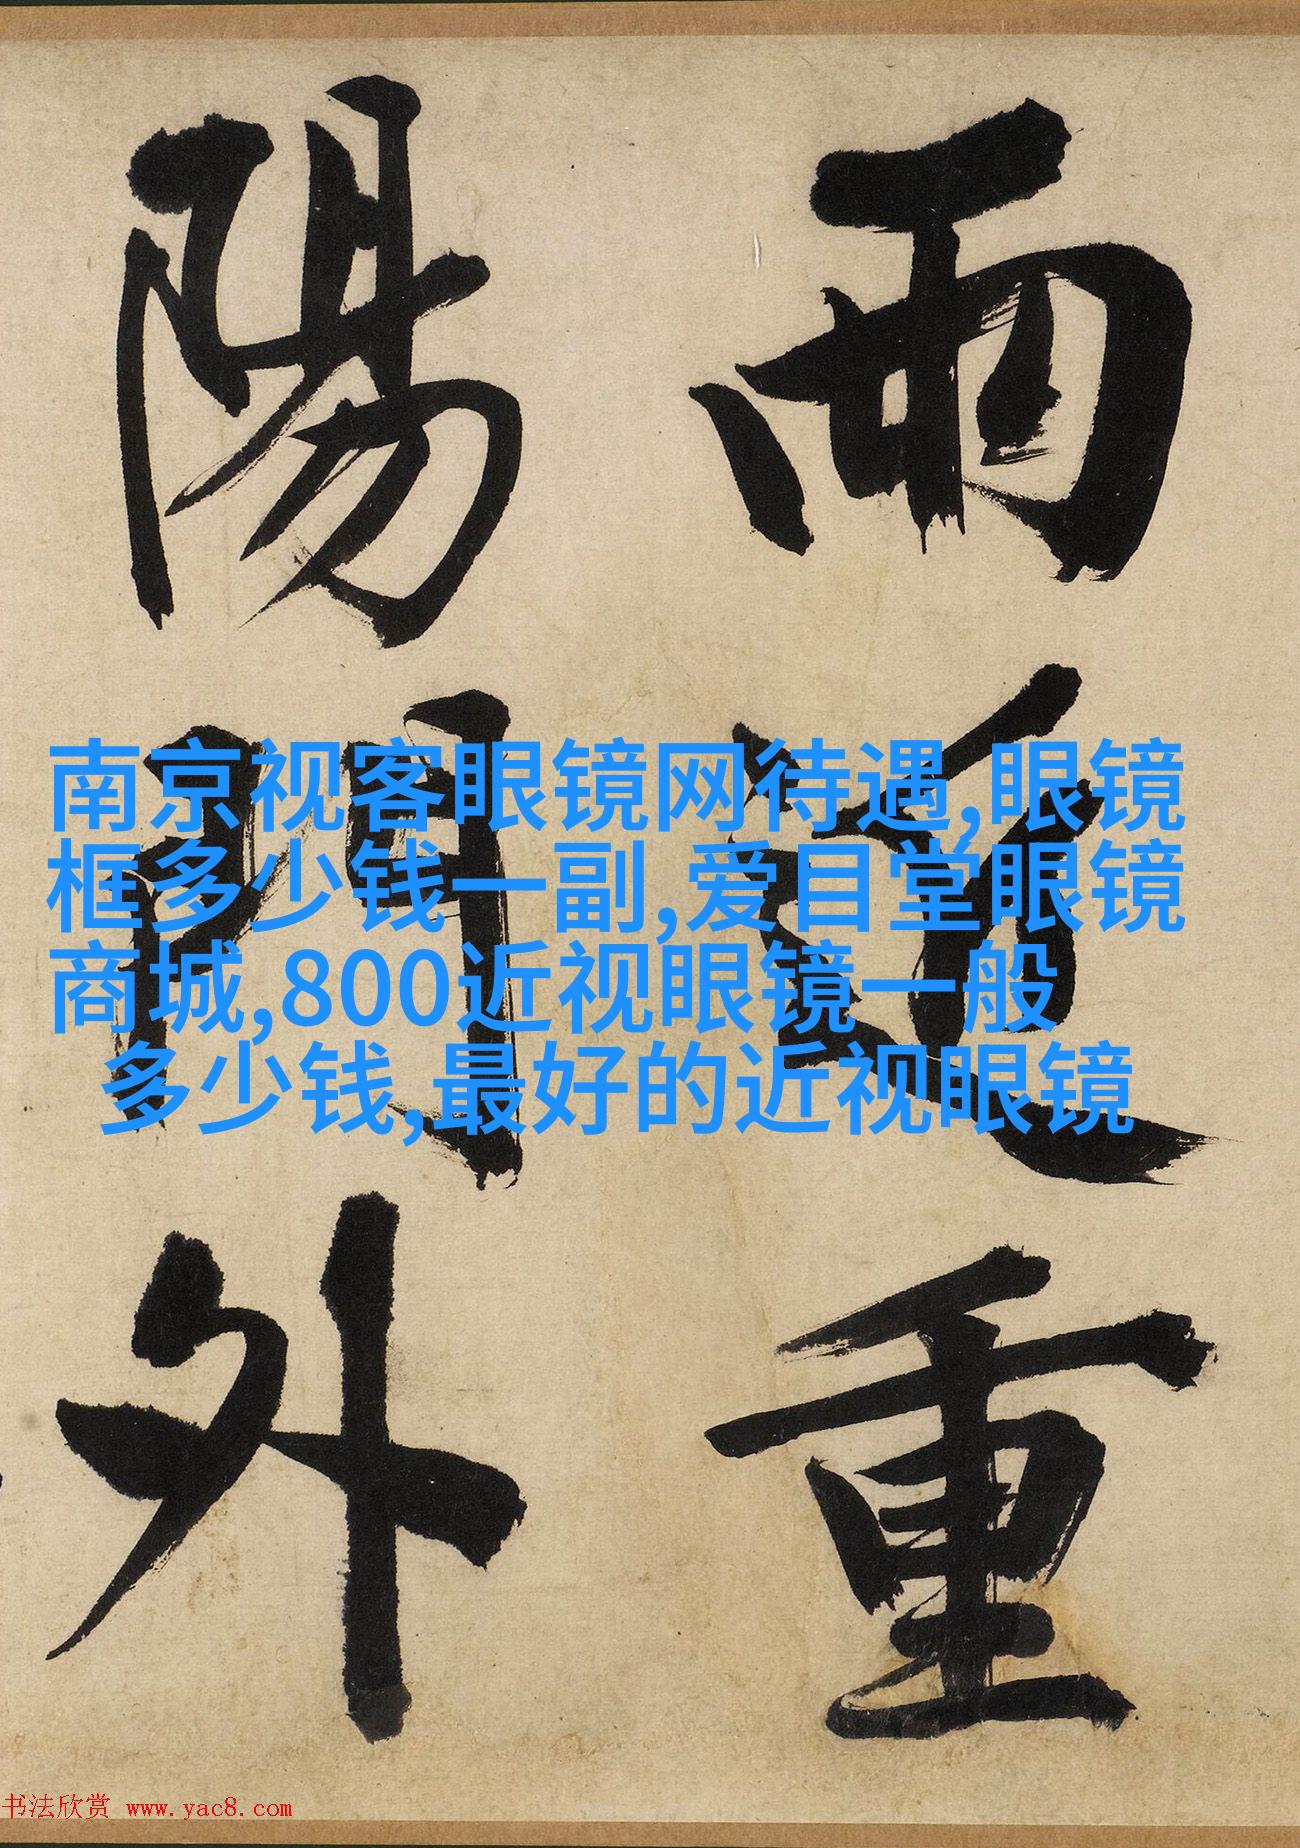 雨近重
陽門外
南京视客眼镜网待遇,眼镜
框多少钱一副,爱目堂眼镜
商城,800近视眼镜一般
多少钱,最好的近视眼镜
书法欣赏 www.yac8.com